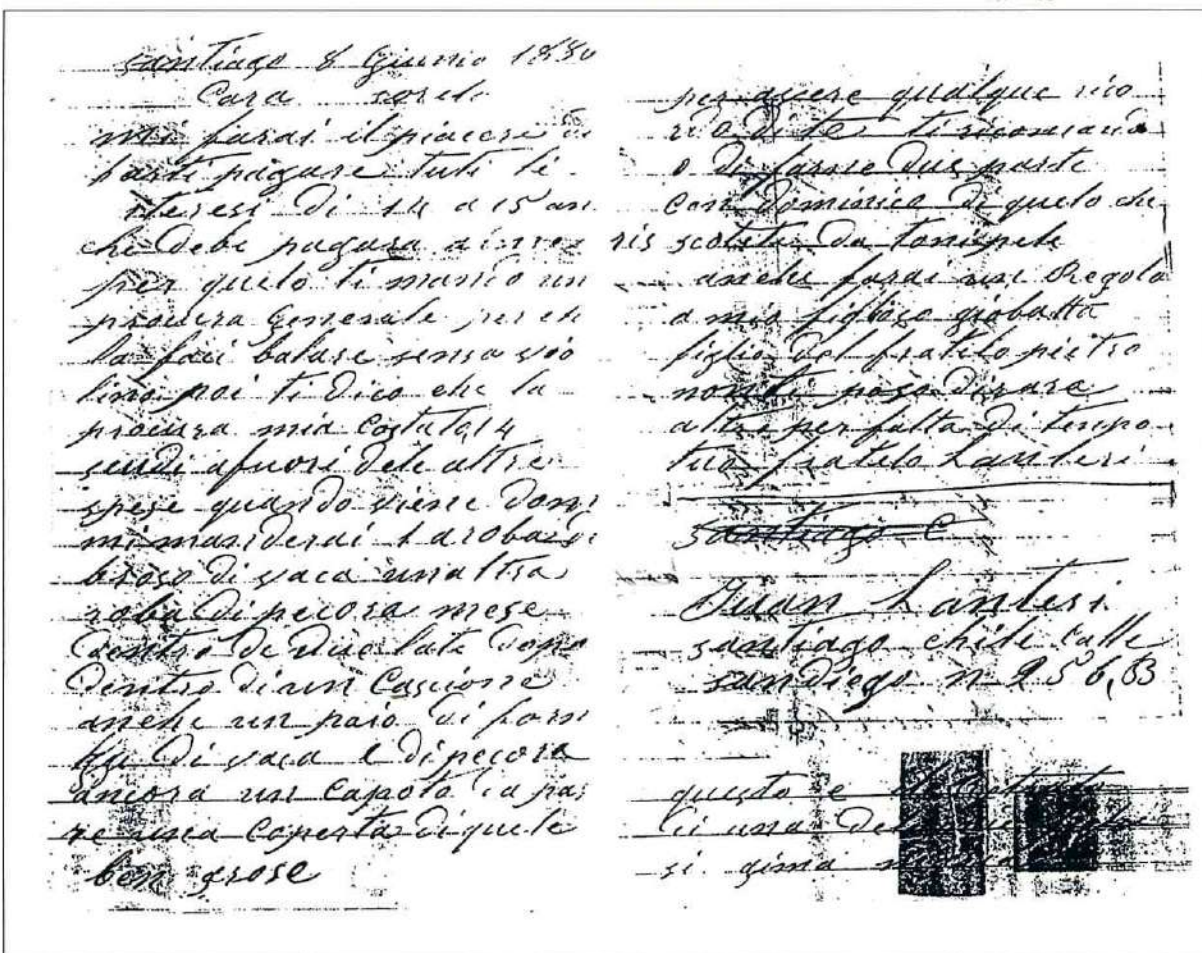 santiago 8 Giunio 1880
Cara sorele
mi farai il piacere di
farti pagare tuti li
interesi di 14 a 15 an
che debe pagara
per quelo ti manio un
procura Generale per ch
la faci balare sensa vio
lino poi ti Dico che la
procura mia Costato 14
scudi afuori dele altre
spese quando viene Dom
mi manderai 1 aroba di
broso di vaca unaltra
roba di pecora mese
Dentro De Due late Dopo
Dentro di un Cascione
anche un paio di form
di vaca e di pecora
ancora un Capoto
re una Coperta di quele
ben grose
per avere qualque rico
rdo di te ti ricomand
o di farne due parte
con Dominica di quelo che
riscotete Da
anche farai un Regolo
a mio figlioso giobatta
figlio del fratelo pietro
non ti poso Dirare
altre per falta di tenpo
tuo fratelo Lanteri
santiago C
Juan Lanteri
santiago chile Calle
san diego n 256,B3
questo e
di una De
si gima